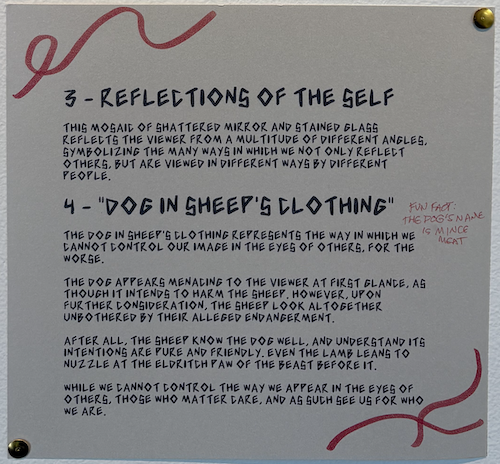 3 - REFLECTIONS OF THE SELF
THIS MOSAIC OF SHATTERED MIRROR AND STAINED GLASS
REFLECTS THE VIEWER FROM A MULTITUDE OF DIFFERENT ANGLES,
SYMBOLIZING THE MANY WAYS IN WHICH WE NOT ONLY REFLECT
OTHERS, BUT ARE VIEWED IN DIFFERENT WAYS BY DIFFERENT
PEOPLE.
4 - "DOG IN SHEEP'S CLOTHING"
FUN FACT:
THE DOG'S NAME
IS MINCE
MEAT
THE DOG IN SHEEP'S CLOTHING REPRESENTS THE WAY IN WHICH WE
CANNOT CONTROL OUR IMAGE IN THE EYES OF OTHERS, FOR THE
WORSE.
THE DOG APPEARS MENACING TO THE VIEWER AT FIRST GLANCE, AS
THOUGH IT INTENDS TO HARM THE SHEEP. HOWEVER, UPON
FURTHER CONSIDERATION, THE SHEEP LOOK ALTOGETHER
UNBOTHERED BY THEIR ALLEGED ENDANGERMENT.
AFTER ALL, THE SHEEP KNOW THE DOG WELL, AND UNDERSTAND ITS
INTENTIONS ARE PURE AND FRIENDLY. EVEN THE LAMB LEANS TO
NUZZLE AT THE ELDRITCH PAW OF THE BEAST BEFORE IT.
WHILE WE CANNOT CONTROL THE WAY WE APPEAR IN THE EYES OF
OTHERS, THOSE WHO MATTER CARE, AND AS SUCH SEE US FOR WHO
WE ARE.